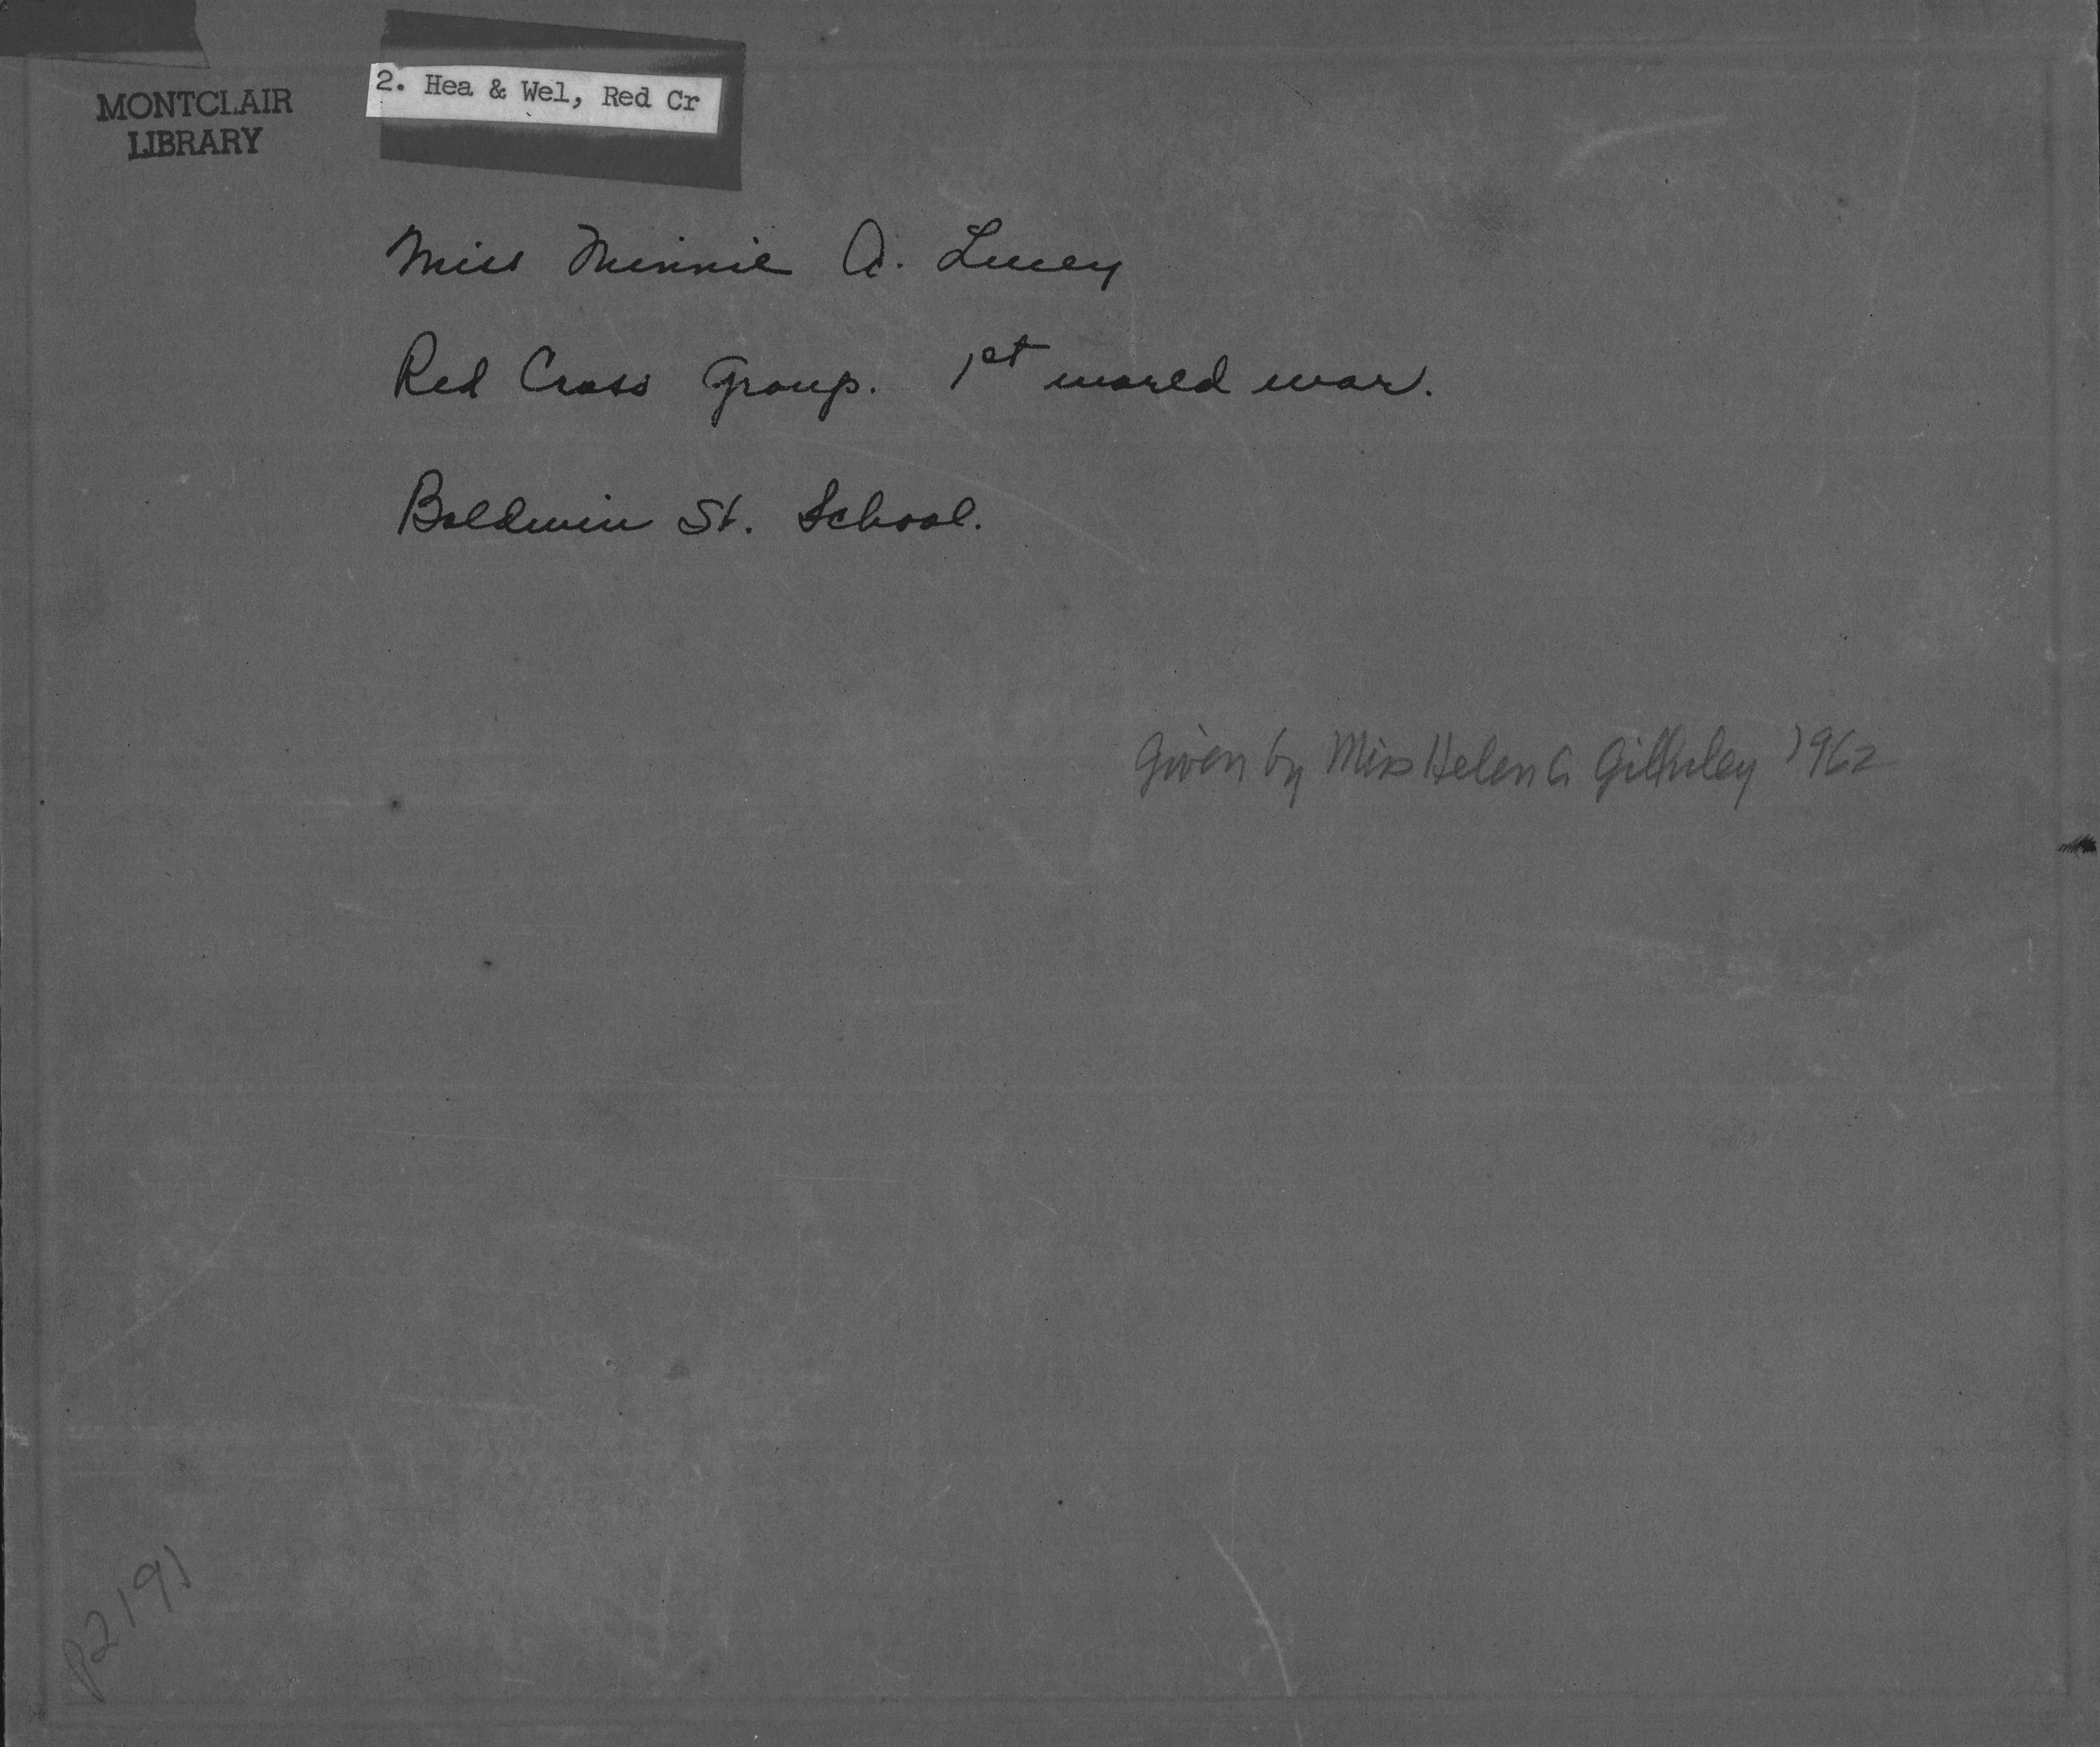 MONTCLAIR
LIBRARY
2. Hea & Wel, Red Cr
Miss Minnie A. Lucey
Red Cross Group. 1st World War.
Baldwin St. School.
Given by Miss Helen G 1962
P2191